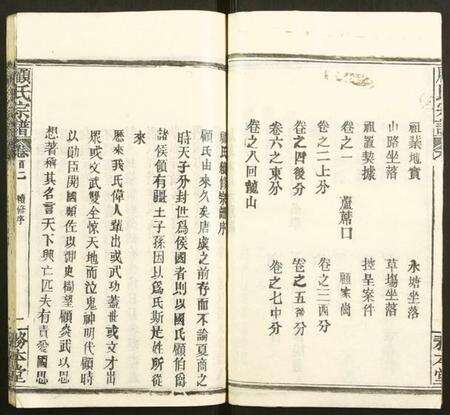 顧氏宗譜
祖塋地實
永塘坐落
山路坐落
草塲坐落
祖置契據
控呈案件
卷之一 蘆蓆口
顧家崗
卷之二上分
卷之三西分
卷之四後分
卷之五爺分
卷六之東分
卷之七中分
卷之八回龍山
務本堂
顧氏續修宗譜序
顧氏由來久矣唐虞之前存而不論夏商之
時天子分封世爲侯國者則以國氏顧伯爵
諸侯領有疆土子孫因以爲氏斯是姓所從
來
歷來我氏偉人輩出或武功蓋世或文才出
眾或文武雙全惊天地而泣鬼神明代顧時
以勛臣開國顧佐以御史樹望顧炎武以思
想著稱其名言天下興亡匹夫有責愛國思
顧氏宗譜
卷首二
續修序
一
務本堂